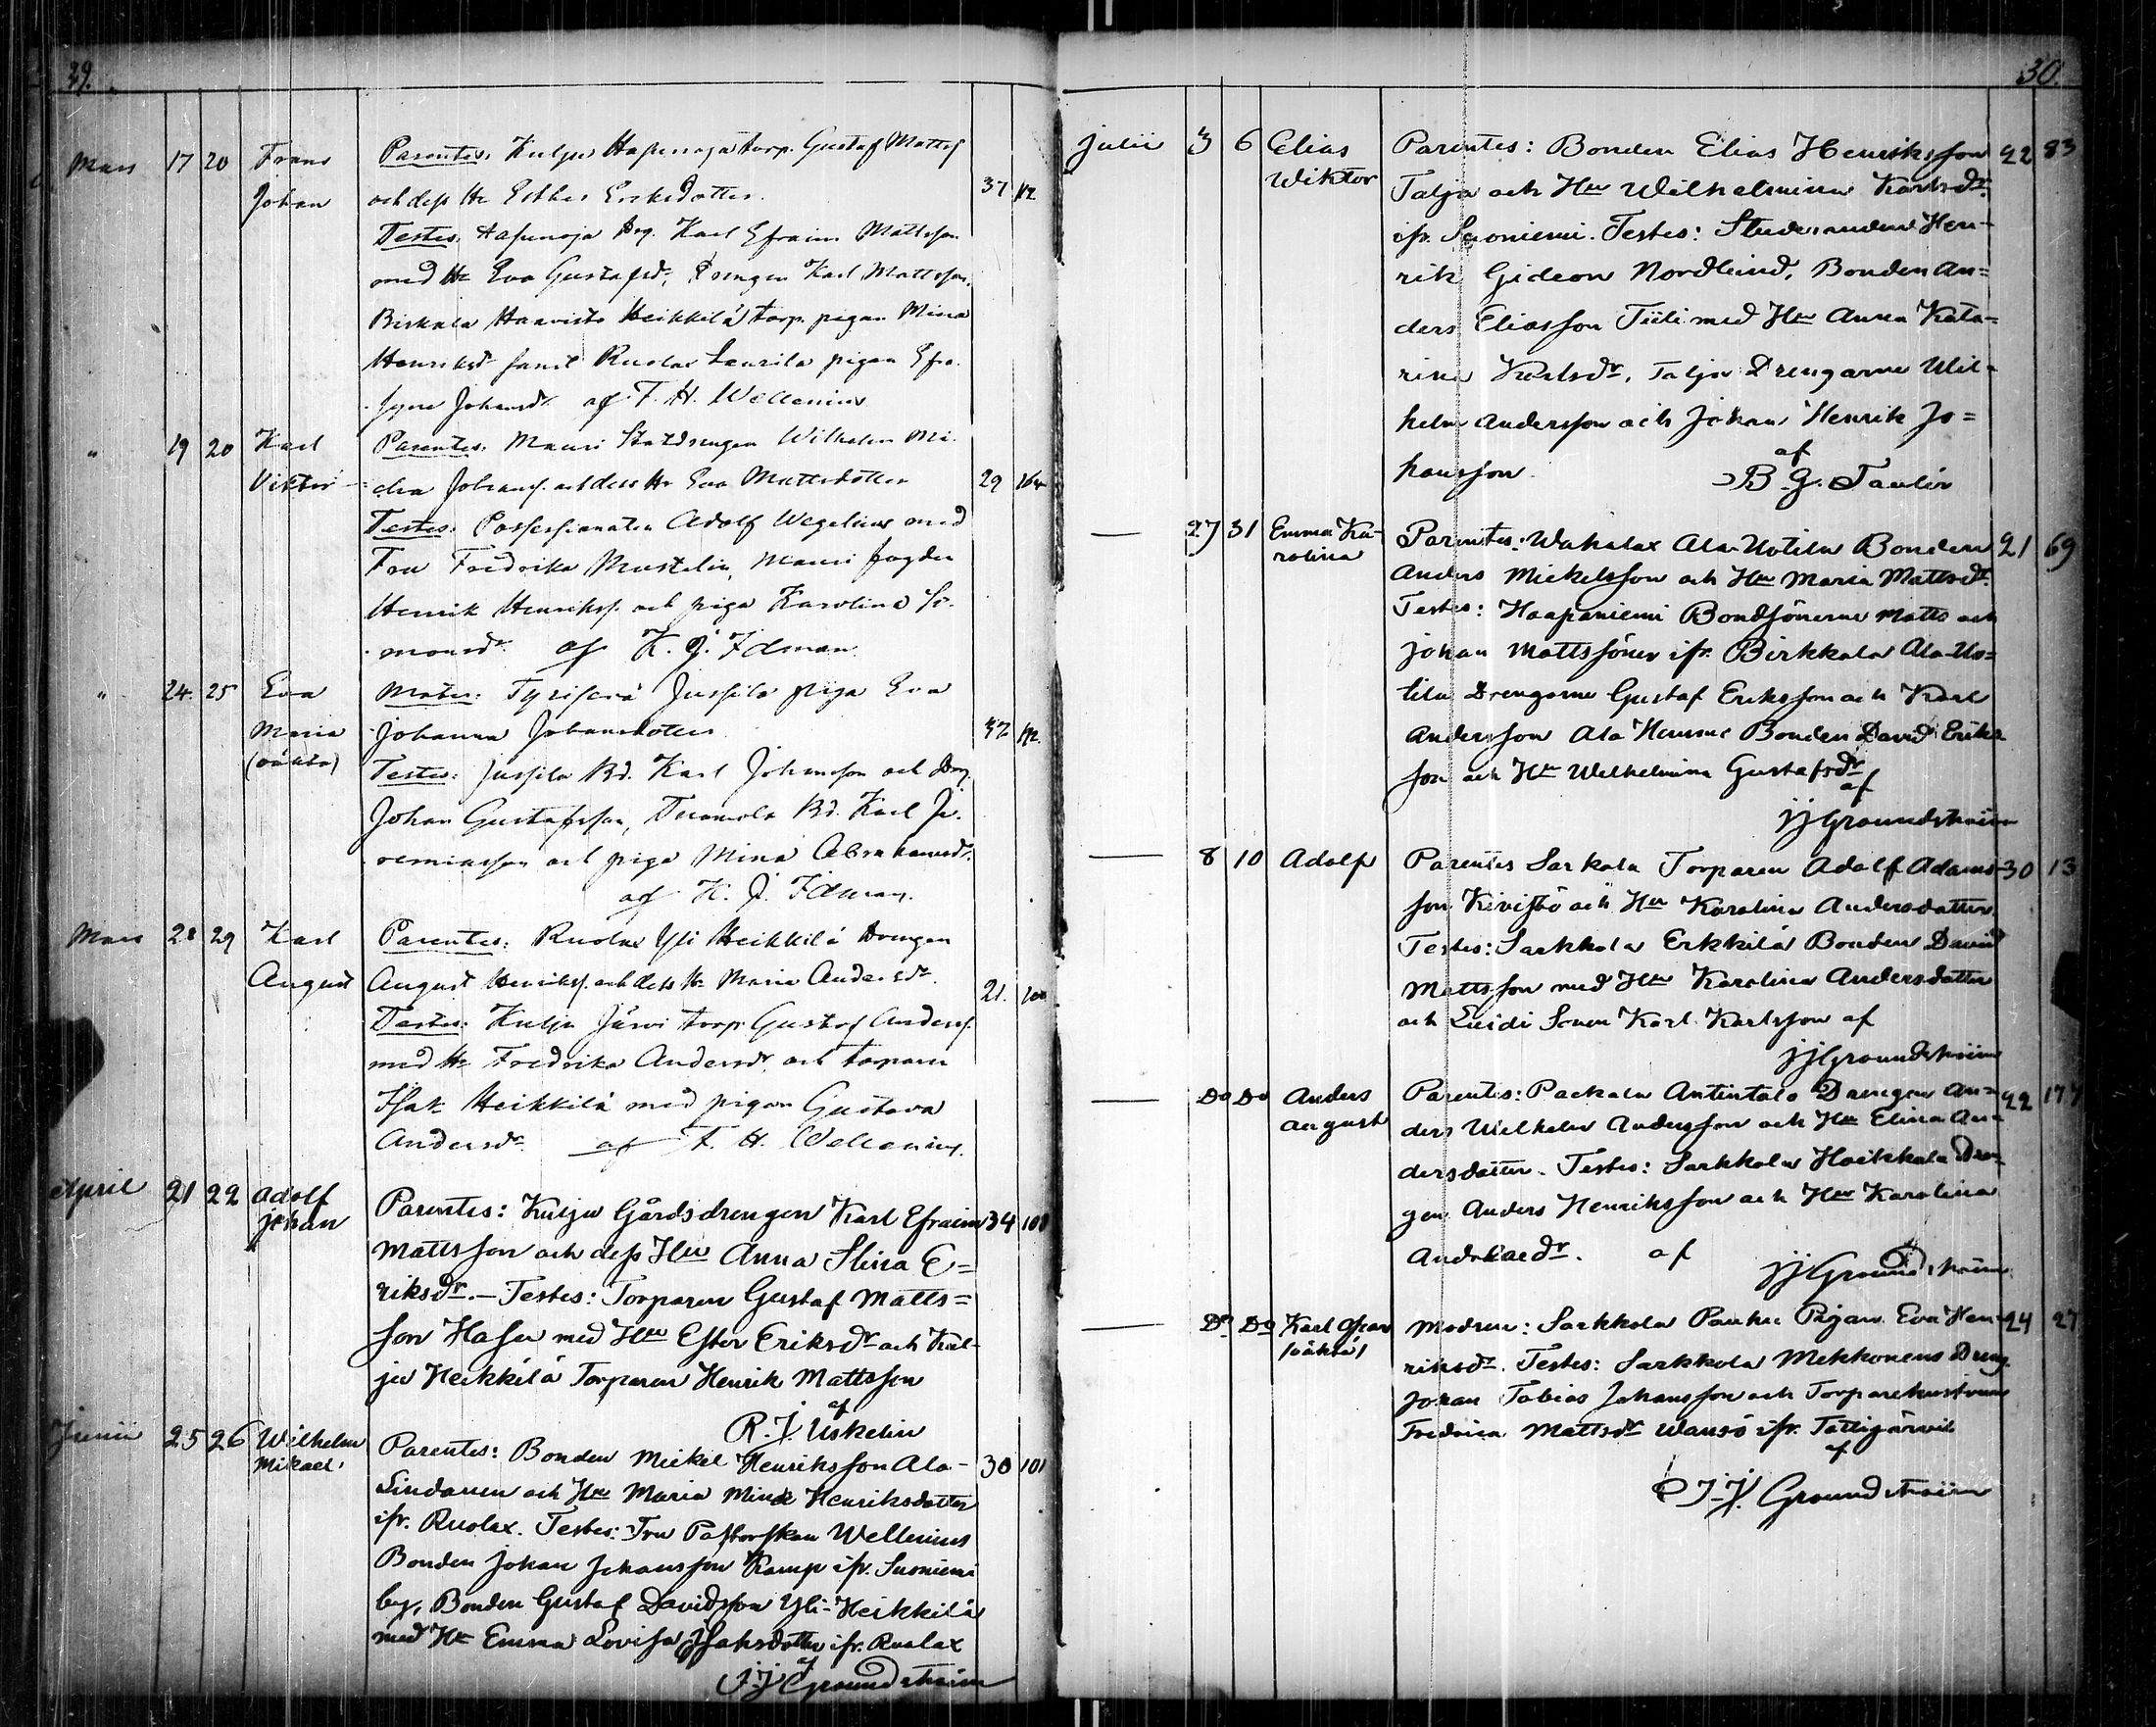 29.
Mars 17 20 Frans Parentes: Kulju Hapunoja torp. Gustaf Mattss.
Johan och dess H. Esther Eriksdotter. 37 112
Testes: Hapunoja Drg. Karl Efraim Mattsson
med H. Eva Gustafsdr, Drengen Karl Mattsson,
Birkala Haavisto Heikkilä torp. pigan Mina
Henriksdr samt Ruolax Laurila pigan Efro-
syne Johansdr. af F. H. Wellenius
" 19 20 Karl Parentes: Mauri Statdrengen Wilhelm Mi-
Viktor chn Johanss. och dess H. Eva Mattsdotter 29
Testes: Possessionaten Adolf Wegelius med
Fru Fredrika Mustelin, Mauri fogden
Henrik Henrikss. och piga Karolina Si-
monsdr. af K. J. Idman
" 24. 25 Eva Mater: Tyrisevä Jussila piga Eva
Maria Johanna Johansdotter
(oäkta) Testes: Jussila Bd. Karl Johansson och Drg.
Johan Gustafsson, Tuomola Bd. Karl Je-
remiasson och piga Mina Abrahamsdr.
af K. J. Idman.
Mars 28 29 Karl Parentes: Ruolax Yli Heikkilä Drengen
August August Henrikss. och dess H. Maria Andersdr. 21. 100
Testes: Kulju Järvi torp. Gustaf Anderss.
med H. Fredrika Andersdr. och torparen
Isak Heikkilä med pigan Gustava
Andersdr. af F. H. Wellenius.
April 21 22 Adolf Parentes: Kulju Gårdsdrengen Karl Efraim 34 108
Johan Mattsson och dess Hu Anna Stina E=
riksdr. — Testes: Torparen Gustaf Matts=
son Hasu med Hu Ester Eriksdr och Kul-
ju Heikkilä Torparen Henrik Mattsson
af
R. J. Uskelin
Junii 25 26 Wilhelm Parentes: Bonden Mickel Henriksson Ala- 30 101
Mikael Lindanen och Hu Maria Mina Henriksdotter
ifr. Ruolax. Testes: Fru Pastorskan Wellenius
Bonden Johan Johansson Kamp ifr. Suoniemi
by, Bonden Gustaf Davidsson Yli-Heikkilä
med Hu Emma Lovisa Isaksdotter ifr. Ruolax
af
J. J. Groundstroim
30.
Julii 3 6 Elias Parentes: Bonden Elias Henriksson 22 83
Wiktor Talja och Hu Wilhelmina Karlsdr.
ifr. Suoniemi. Testes: Studeranden Hen-
rik Gideon Nordlund, Bonden An=
ders Eliasson Tiili med Hu Anna Kata-
rina Karlsdr, Talja Drengarne Wil-
helm Andersson och Johan Henrik Jo=
hansson af
B. G. Taulér
— 27 31 Emma Ka- Parentes: Wahalax Ala-Uotila Bonden 21 69
rolina Anders Mickelsson och Hu Maria Mattsdr.
Testes: Haapaniemi Bondsönerne Matts och
Johan Mattssöner ifr. Birkkala Ala-Uo=
tila Drengarne Gustaf Eriksson och Karl
Andersson Ala Hemme Bonden David Eriks-
son och Hu Wilhelmina Gustafsdr
af
JJGroundstroim
— 8 10 Adolf Parentes Sarkola Torparen Adolf Adams- 30 13
son Kivistö och Hu Karolina Andersdotter.
Testes: Sarkkola Erkkilä Bonden David
Mattsson med Hu Karolina Andersdotter
och Sonen Karl Karlsson af
JJGroundstroim
— Do Do Anders Parentes: Packala Antintalo Drengen An- 22 177
August ders Wilhelm Andersson och Hu Elina An-
dersdotter. Testes: Sarkkola Hoikkala Dren-
gen Anders Henriksson och Hu Karolina
af
JJGroundstroim
— Do Do Karl Oscar Modren: Sarkkola Pigan Eva Hen- 24 27
/oäkta/ riksdr. Testes: Sarkkola Mekkonens Dreng
Johan Tobias Johansson och Torparehustrun
Fredrica Mattsdr ifr. Tottijärvi
af
J. J. Groundstroim